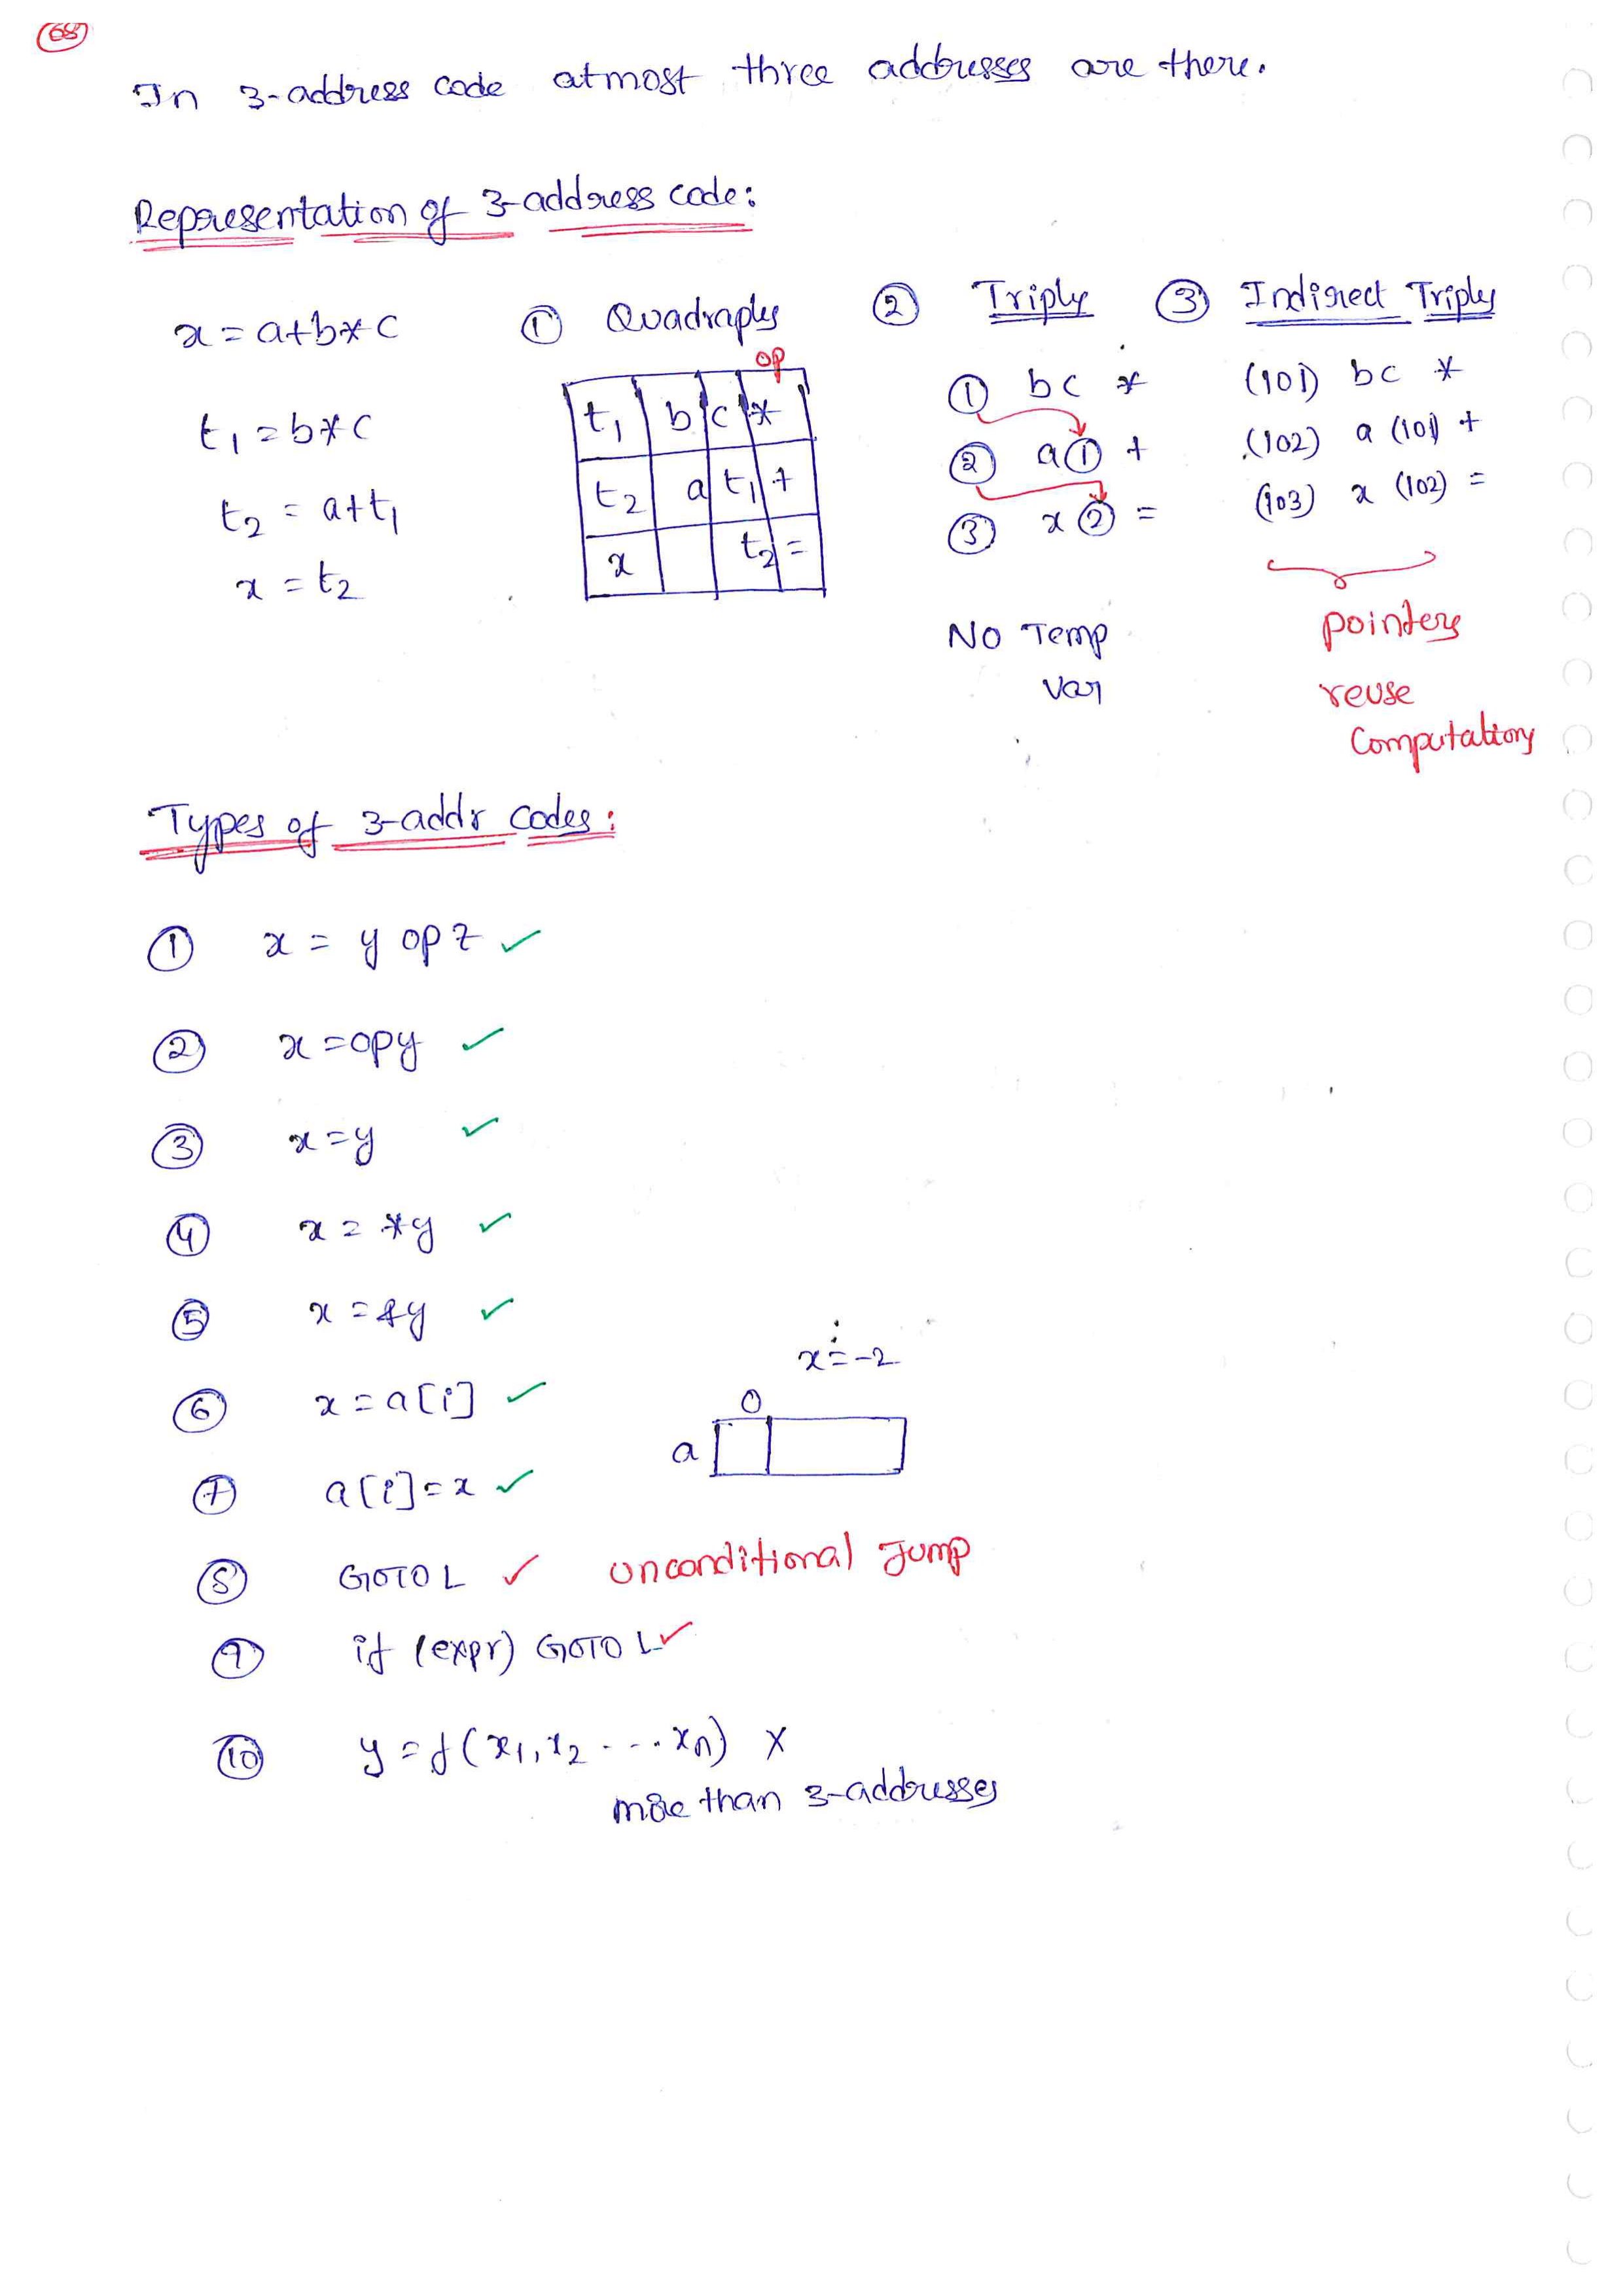 68
In 3-address code atmost three addresses are there.
Representation of 3-address code:
x = a+b*c
t1 = b*c
t2 = a+t1
x = t2
① Quadraples
op
t1 b c *
t2 a t1 +
x t2 =
② Triples
① bc *
② a① +
③ x② =
No Temp
var
③ Indirect Triples
(101) bc *
(102) a (101) +
(103) x (102) =
pointers
reuse
Computations
Types of 3-addr codes:
① x = y op z ✓
② x = op y ✓
③ x = y ✓
④ x = *y ✓
⑤ x = &y ✓
⑥ x = a[i] ✓
x = -2
0
a
⑦ a[i] = x ✓
⑧ GOTO L ✓ unconditional Jump
⑨ if (expr) GOTO L ✓
⑩ y = f(x1, x2 ... xn) ×
more than 3-addresses